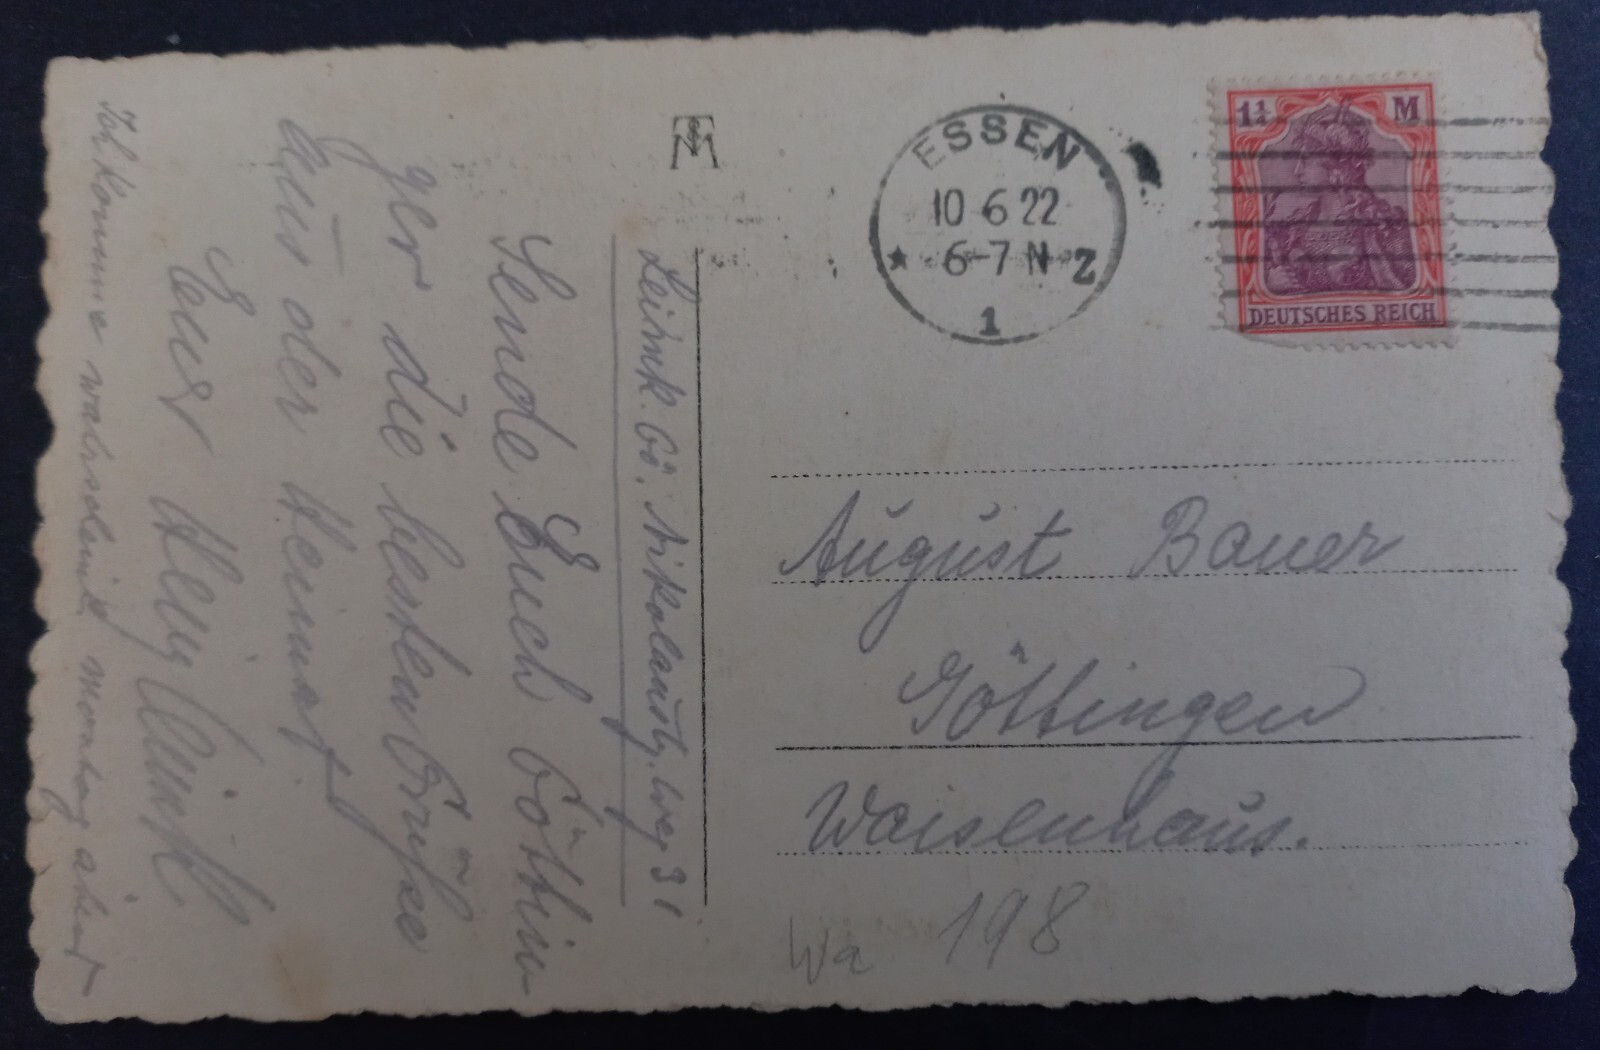 ESSEN
10 6 22
6-7 N
* 2
1
1¼ M
DEUTSCHES REICH
August Bauer
Göttingen
Waisenhaus.
Wa 198
Gö. Nikolausb. Weg 31
Sende Euch Göttin
ger die besten Grüße
aus der Heimat.
Euer
Ich komme wahrscheinl. Montag abend